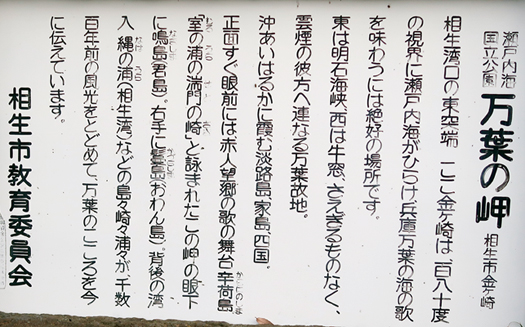 瀬戸内海
国立公園
万葉の岬 相生市金ヶ崎
相生湾口の東突端 ここ金ヶ崎は、一百八十度
の視界に瀬戸内海がひらけ、兵庫万葉の海の歌
を味わうには絶好の場所です。
東は明石海峡、西は牛窓、さえぎるものなく、
雲煙の彼方へ連なる万葉故地。
沖あいはるかに霞む淡路島、家島、四国。
正面すぐ眼前には赤人望郷の歌の舞台辛荷島
室の浦の湍門の崎と詠まれたこの岬の眼下
に鳴島(君島)。右手に蔓島(おわん島)。背後の湾
入 縄の浦(相生湾)などの島々崎々浦々が、千数
百年前の風光をとどめて、万葉のこころを今
に伝えています。
相生市教育委員会